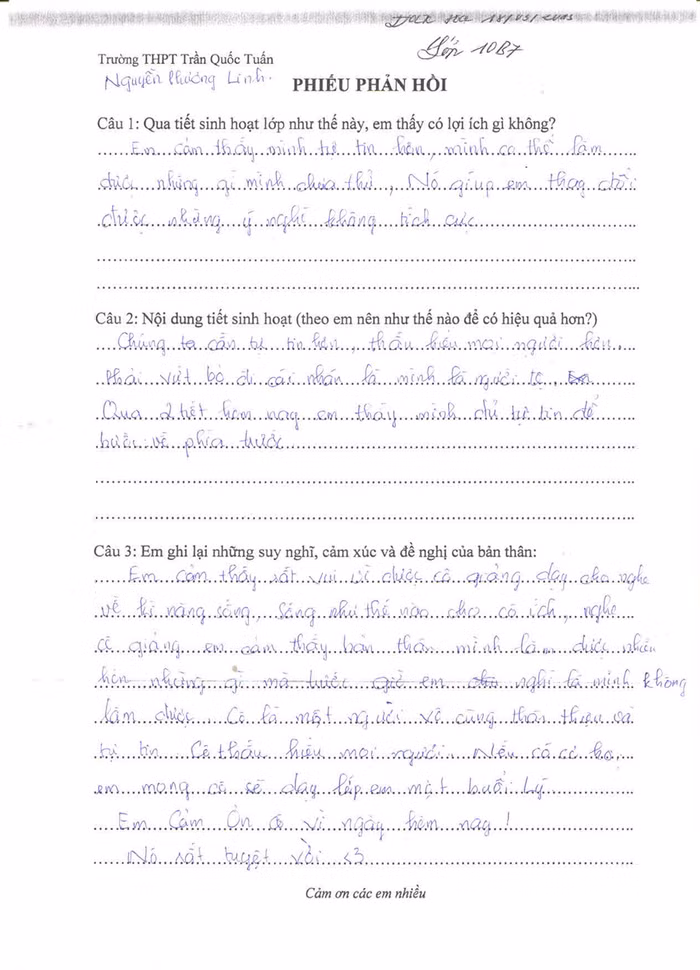 18/05/2015
Lớp 10B7
Trường THPT Trần Quốc Tuấn
Nguyễn Phương Linh.
PHIẾU PHẢN HỒI
Câu 1: Qua tiết sinh hoạt lớp như thế này, em thấy có lợi ích gì không?
Em cảm thấy mình tự tin hơn, mình có thể làm
được những gì mình chưa thử, Nó giúp em thay đổi
được những ý nghĩ không tích cực
Câu 2: Nội dung tiết sinh hoạt (theo em nên như thế nào để có hiệu quả hơn?)
Chúng ta cần tự tin hơn, thấu hiểu mọi người hơn,
Phải vứt bỏ đi cái nhãn là mình là người tệ,
Qua 2 tiết hôm nay em thấy mình đủ tự tin để
bước về phía trước
Câu 3: Em ghi lại những suy nghĩ, cảm xúc và đề nghị của bản thân:
Em cảm thấy rất vui vì được cô giảng dạy cho nghe
về kĩ năng sống, sống như thế nào cho có ích, nghe
cô giảng em cảm thấy bản thân mình làm được nhiều
hơn những gì mà trước giờ em nghĩ là mình không
làm được. Cô là một người vô cùng thân thiện và
tự tin. Cô thấu hiểu mọi người. Nếu có cơ hội,
em mong cô sẽ dạy lớp em một buổi Lý
Em Cảm Ơn cô vì ngày hôm nay!
Nó rất tuyệt vời <3
Cảm ơn các em nhiều